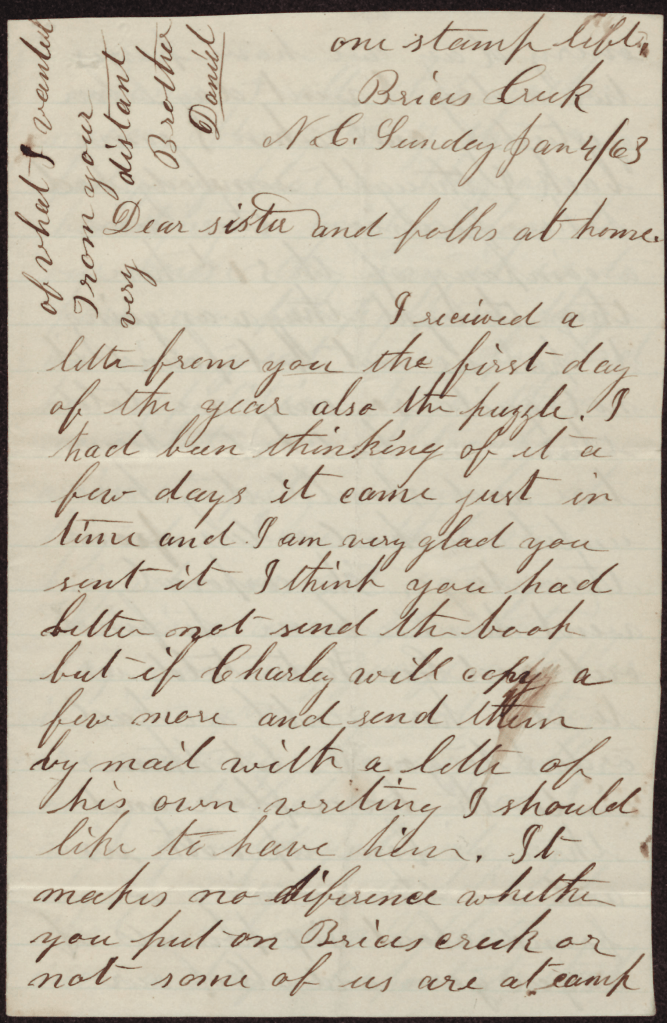 one stamp left.
Brices Creek
N.C. Sunday Jan 4/63
Dear sister and folks at home.
I recieved a
letter from you the first day
of the year also the puzzle. I
had been thinking of it a
few days it came just in
time and I am very glad you
sent it I think you had
better not send the book
but if Charley will copy a
few more and send them
by mail with a letter of
his own writing I should
like to have him. It
makes no diference whether
you put on Brices creek or
not some of us are at camp
of what I wanted
From your
very distant
Brother
Daniel